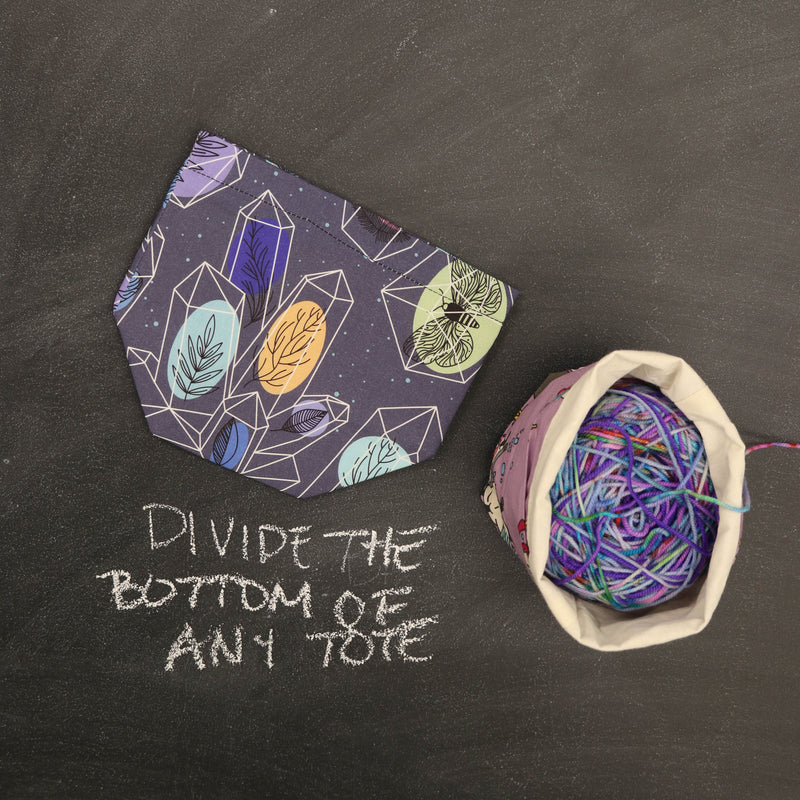 DIVIDE THE
BOTTOM OF
ANY TOTE